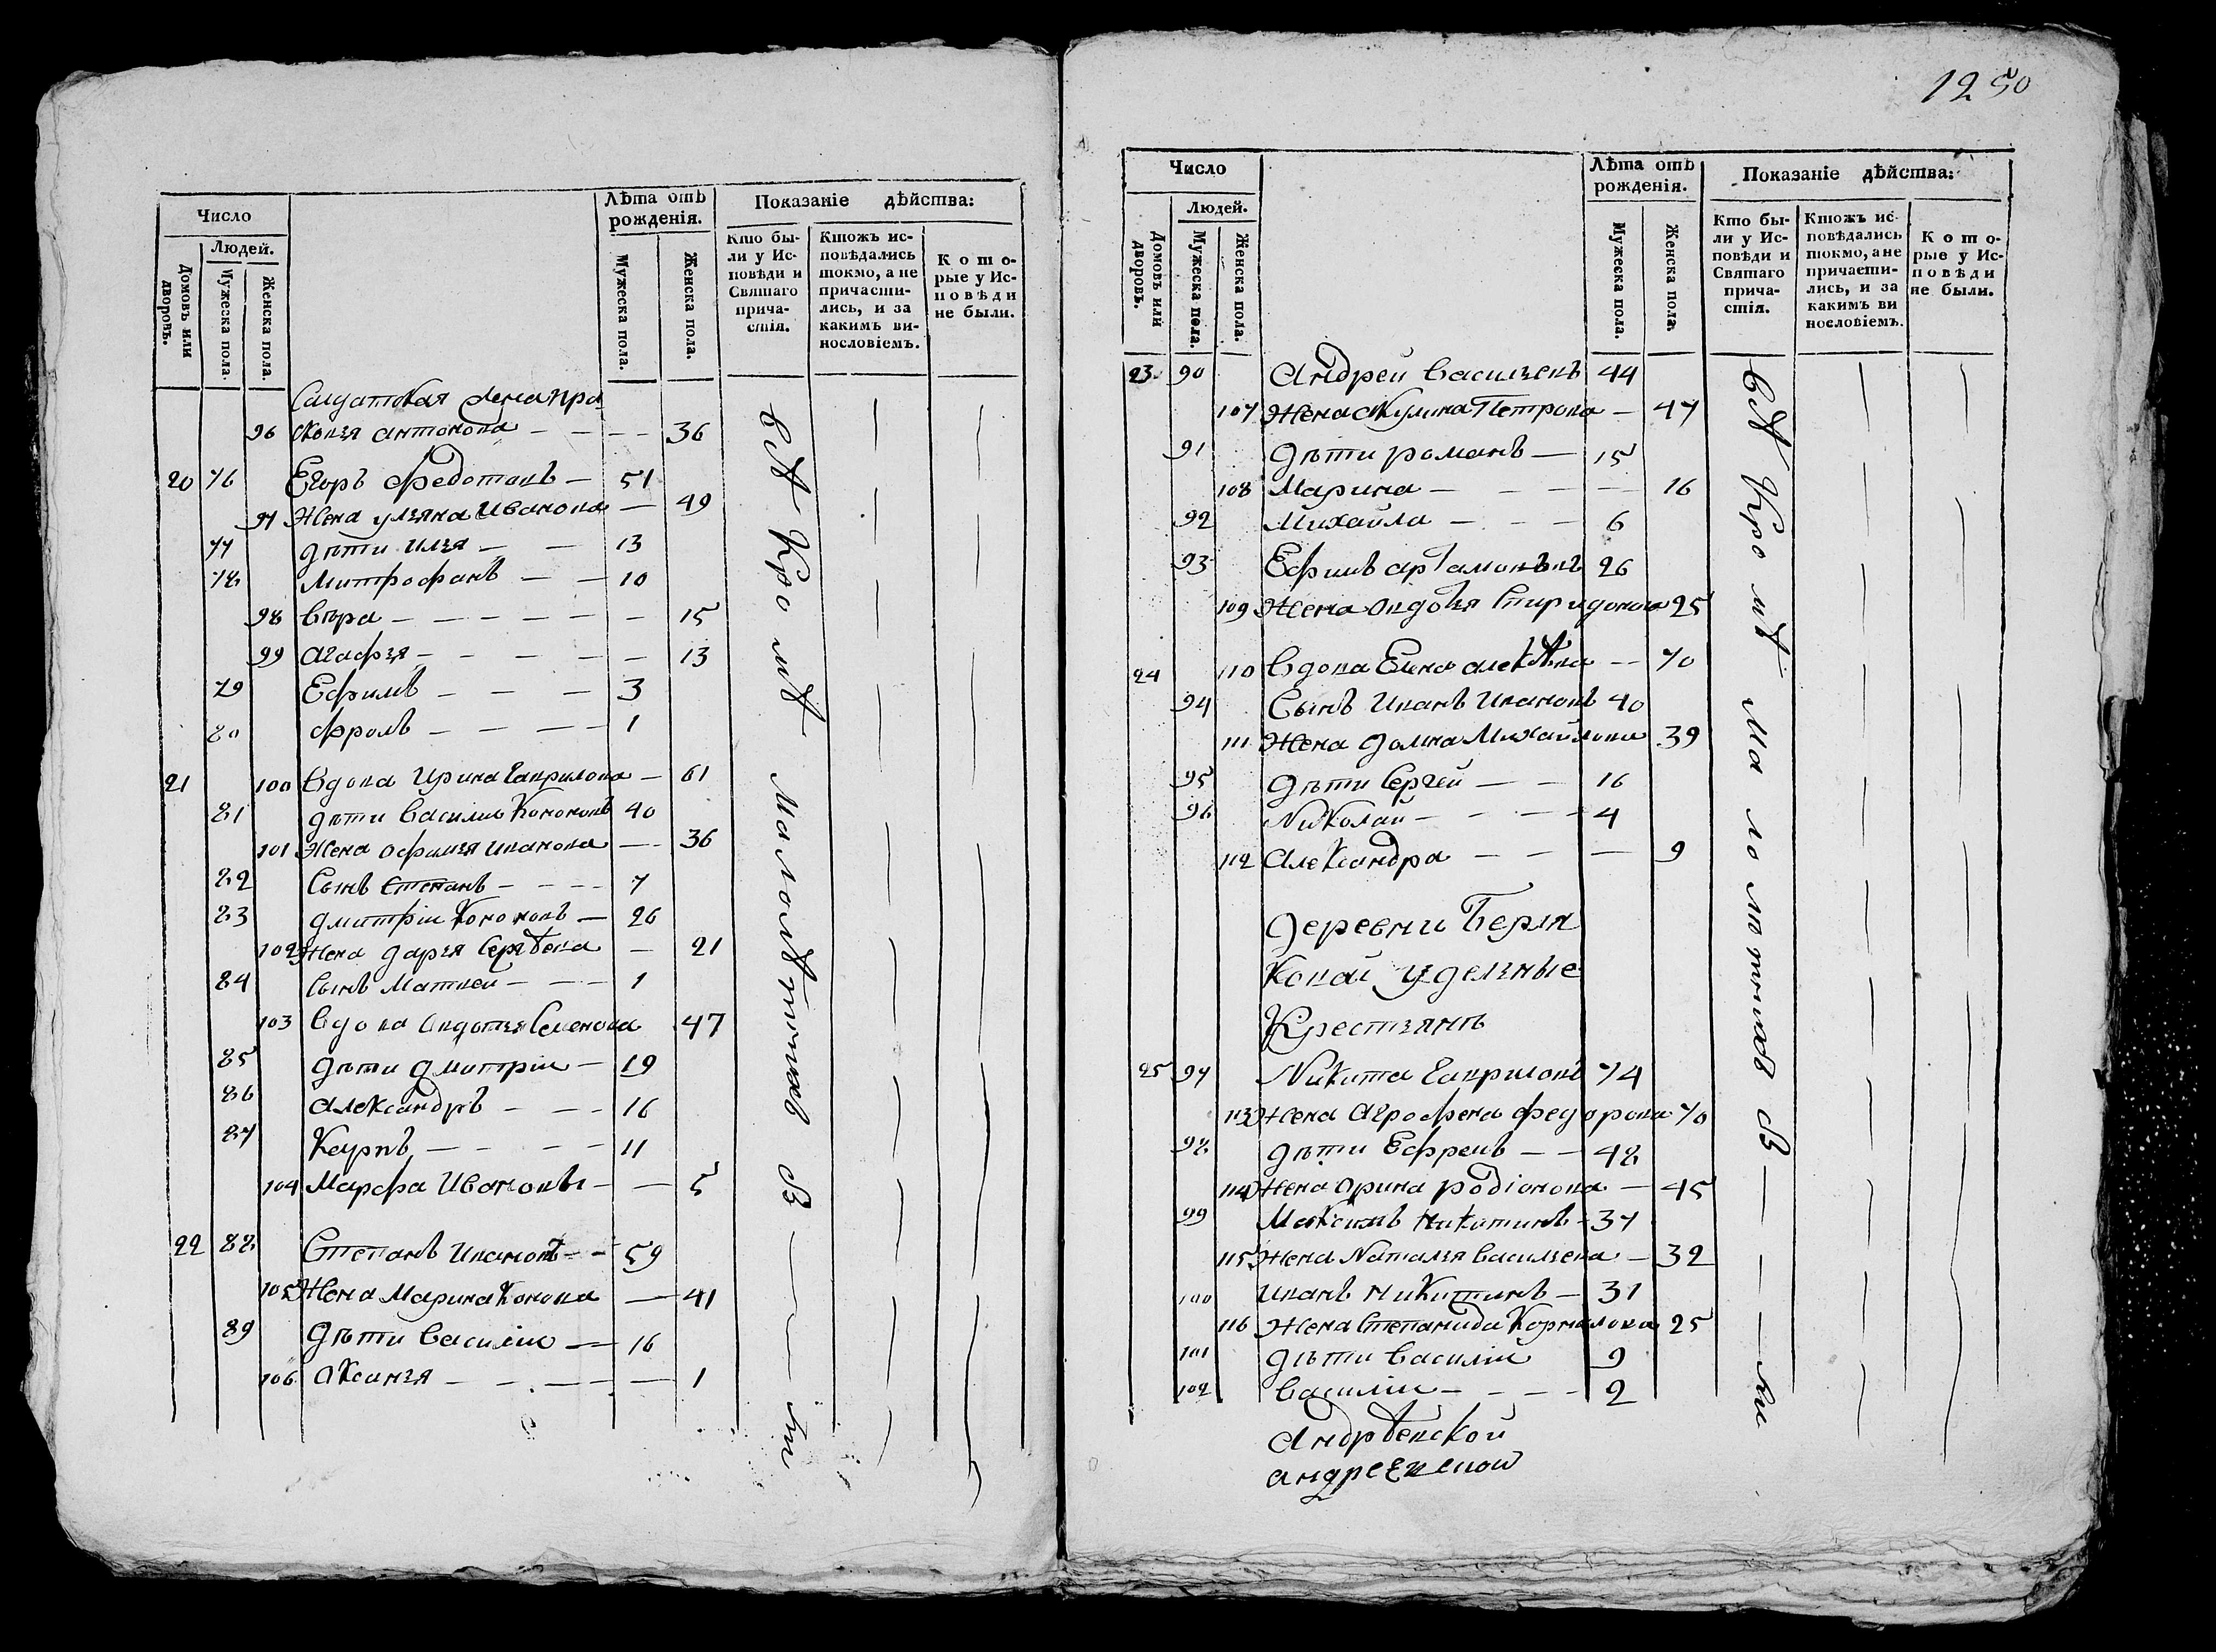 Число
Лѣта отъ рожденія.
Показаніе дѣйства:
Людей.
Домовъ или дворовъ.
Мужеска пола.
Женска пола.
Мужеска пола.
Женска пола.
Кто бы-
ли у Ис-
повѣди и
Святаго
прича-
стія.
Ктожъ ис-
повѣдались
токмо, а не
причасти-
лись, и за
какимъ ви-
нословіемъ.
К о т о-
рые у Ис-
п о в ѣ д и
не были.
Салдатская жена пра
96 сковья антонова — 36
20 76 Егоръ Ѳедотовъ — 51
97 Жена ульяна Иванова — 49
77 дѣти илья — 13
78 Митрофанъ — 10
98 Вѣра — 15
99 агафья — 13
79 Ефимъ — 3
80 фролъ — 1
21 100 Вдова Ирина Гаврилова — 61
81 дѣти Василій Кононовъ 40
101 Жена офимья иванова — 36
82 Сынъ Степанъ — 7
83 дмитріи Кононовъ — 26
102 Жена дарья Сергѣева — 21
84 Сынъ Матвей — 1
103 Вдова Авдотья Семенова 47
85 дѣти дмитріи — 19
86 александръ — 16
87 Карпъ — 11
104 Марфа Ивановы — 5
22 88 Степанъ Ивановъ — 59
105 Жена Марина Конова — 41
89 дѣти Василіи — 16
106 аксинья — 1
всѣ Кромѣ малолѣтныхъ В — ли
12 50
Число
Лѣта отъ рожденія.
Показаніе дѣйства:
Людей.
Домовъ или дворовъ.
Мужеска пола.
Женска пола.
Мужеска пола.
Женска пола.
Кто бы-
ли у Ис-
повѣди и
Святаго
прича-
стія.
Ктожъ ис-
повѣдались
токмо, а не
причасти-
лись, и за
какимъ ви
нословіемъ.
К о т о-
рые у Ис-
п о в ѣ д и
не были.
23 90 Андрей Васильевъ 44
107 Жена Акулина Петрова — 47
91 дѣти романъ — 15
108 Марина — 16
92 Михайла — 6
93 Ефимъ артамоновъ 26
109 Жена овдотья Спиридонова 25
24 110 Вдова Елена алексѣева — 70
94 Сынъ Иванъ Ивановъ 40
111 Жена домна Михайлова 39
95 дѣти Сергей — 16
96 Николай — 4
112 Александра — 9
деревни Берля
ковай удельные
Крестьянѣ
25 97 Никита Гавриловъ 74
113 Жена Аграфена федорова 70
98 дѣти Ефремъ — 48
114 Жена Орина родіонова — 45
99 Максимъ Никитинъ — 37
115 Жена Наталья Васильева — 32
100 Иванъ Никитинъ — 31
116 Жена Степанида Корнилова 25
101 дѣти Василіи 9
102 Василіи — 2
Андрѣевской
андреевской
всѣ Кромѣ малолѣтныхъ В — ли